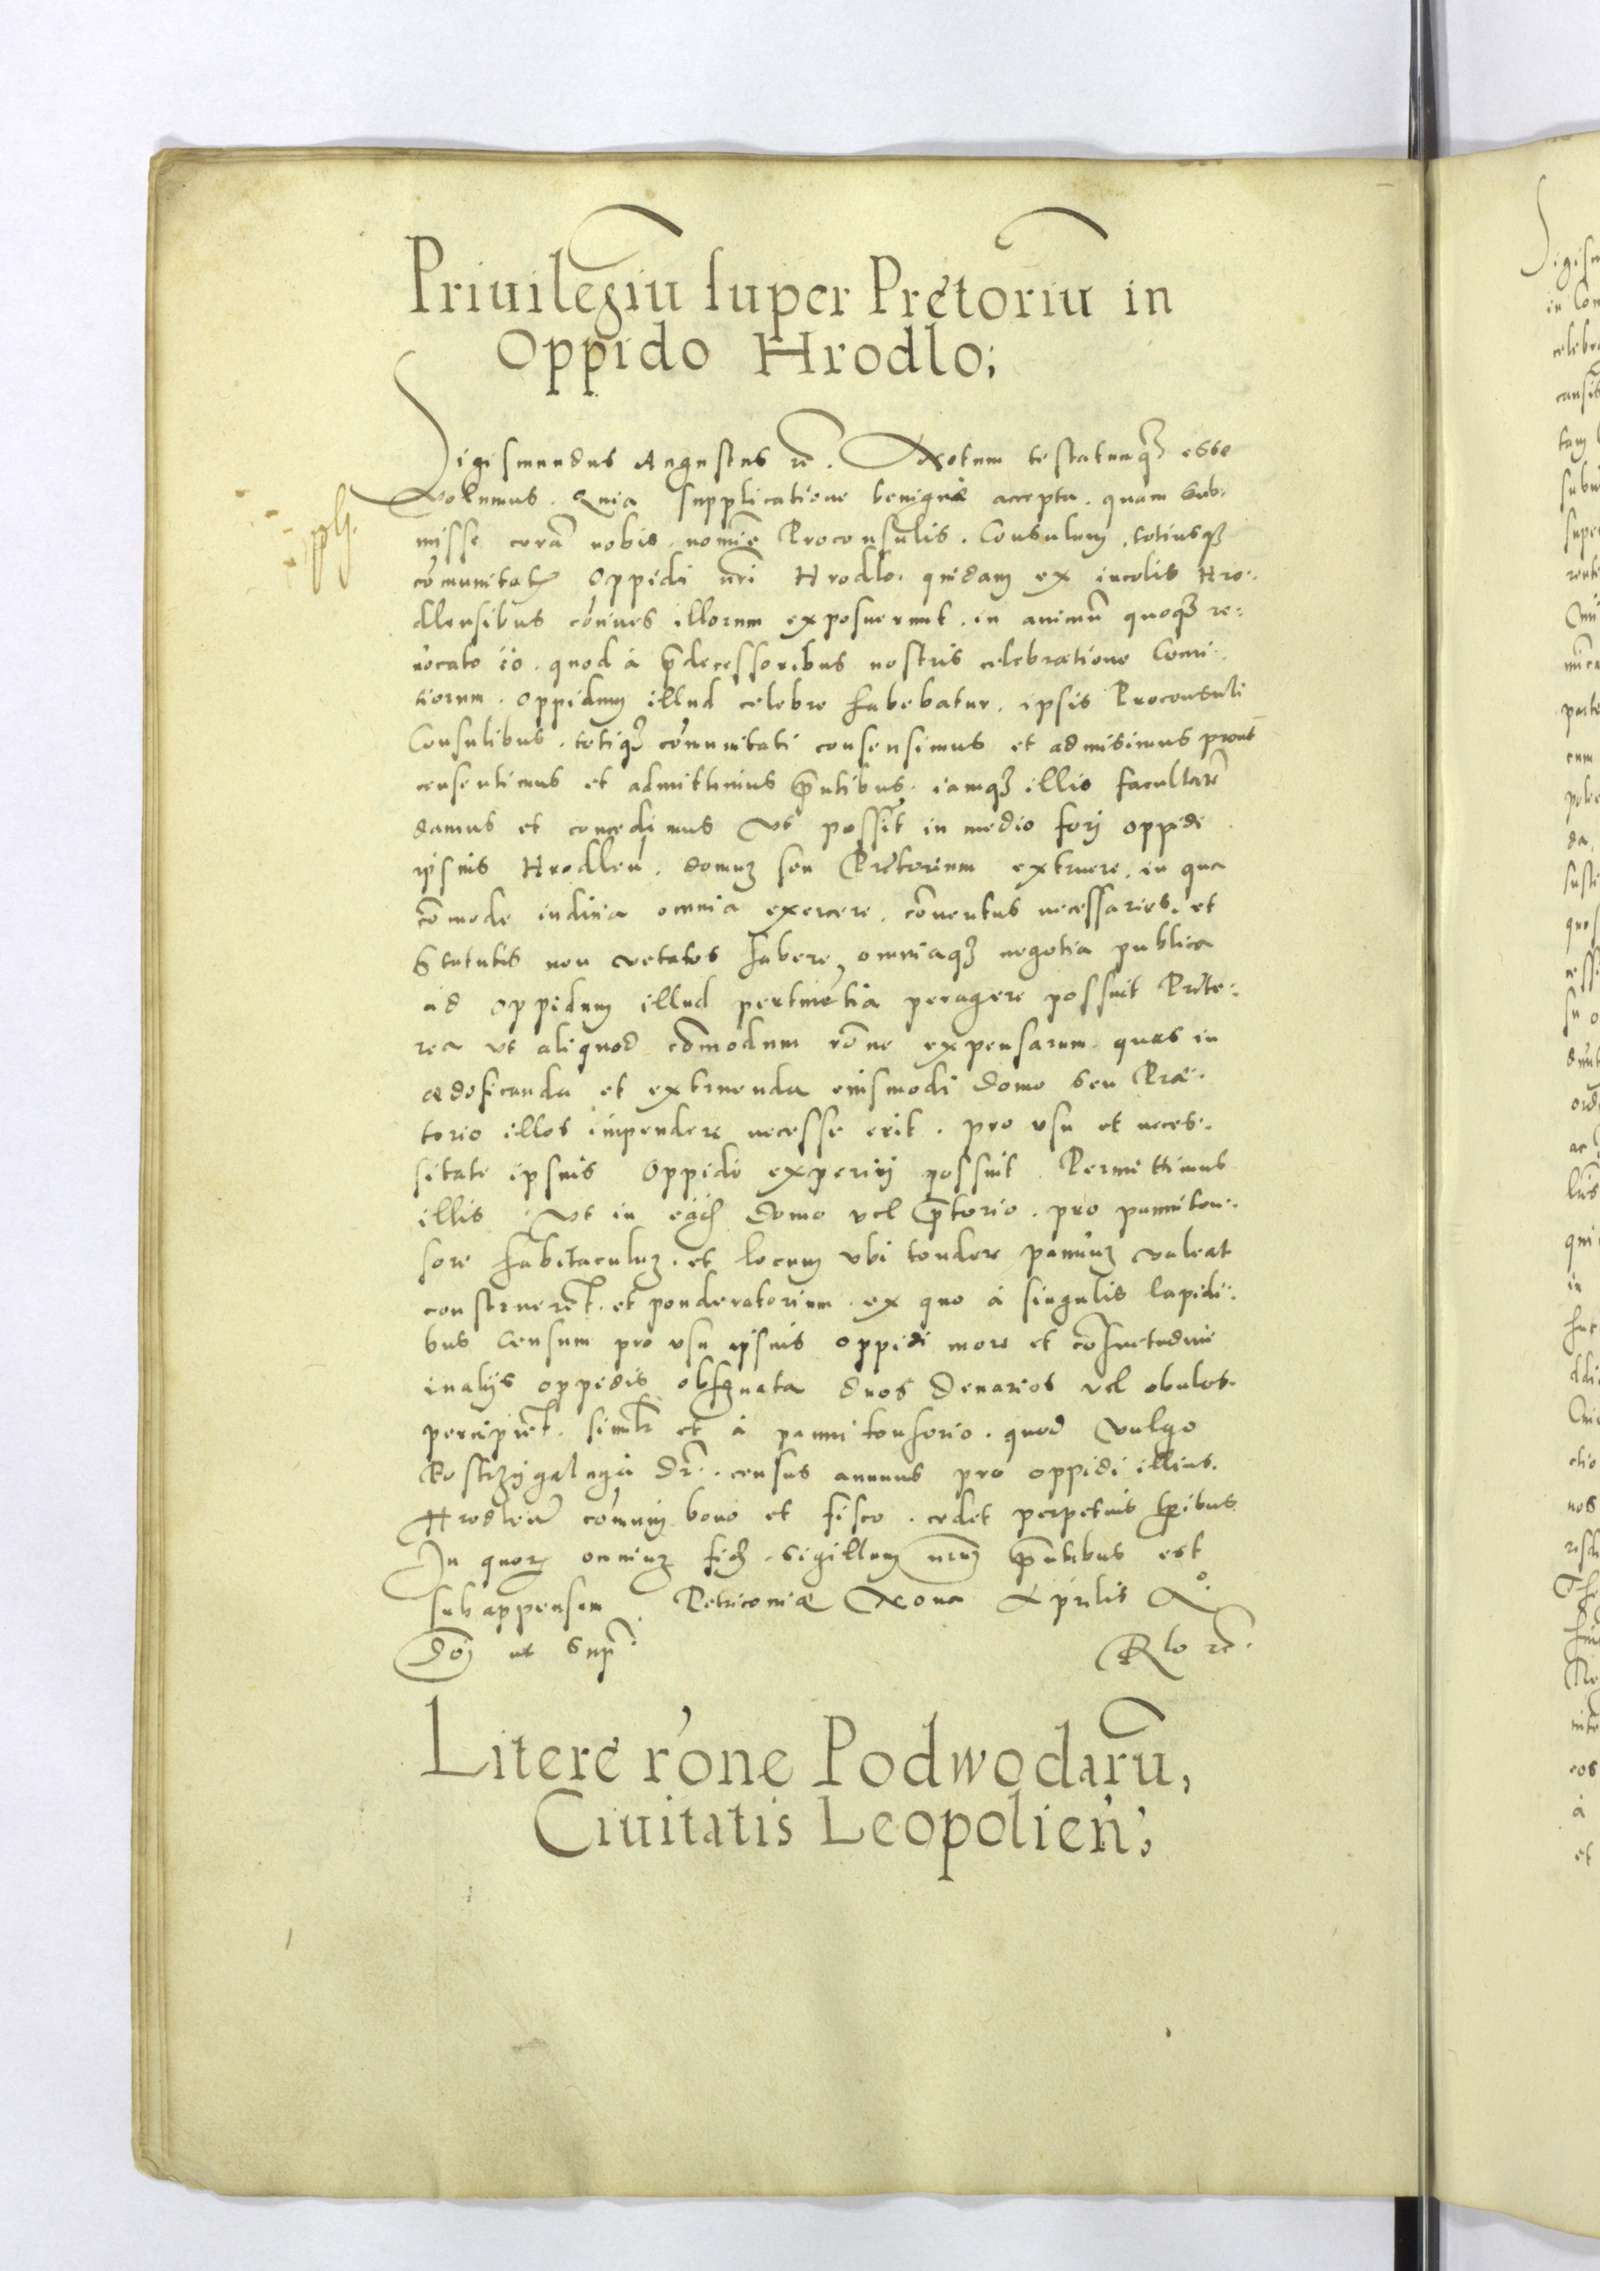 Priuilegiū super Pretoriū in
Oppido Hrodlo;
Sigismundus Augustus rc. Notum testatumq3 esse
volumus. Quia supplicatione benigne accepta. quam sub-
misse corā nobis. nomīe Proconsulis. Consulum. totiusq3
cōmunitatis Oppidi nrī Hrodlo. quidam ex incolis Hro-
dlensibus cōnes illorum exposuerunt. in animū quoq3 re-
uocato eo. quod à p̄decessoribus nostris celebratione Comi-
tiorum. Oppidum illud celebre habebatur. ipsis Proconsuli
Consulibus. totiq3 cōmunitati consensimus et admisimus prout
consentimus et admittimus p̄ntibus. iamq3 illis facultatē
damus et concedimus Vt possīt in medio forj oppidi
ipsius Hrodleń. domuз seu Pretorium extruere. in qua
cōmode iudicia omnia exercere. cōuentus necessarios. et
Statutis non vetatos habere, omniaq3 negotia publica
ad oppidum illud pertinētia peragere possint Prete-
rea vt aliquod cōmodum rōne expensarum quas in
ædificanda et extruenda eiusmodi domo seu Præ-
torio illos impendere necesse erit. pro vsu et neces-
sitate ipsius Oppidi experirj possint. Permittimus
illis Vt in eadē domo vel p̄torio. pro panniton-
sore habitaculuз. et locum vbi tondere pannuз valeat
construerēt. et ponderatorium. ex quo à singulis lapidi-
bus Censum pro vsu ipsius oppidi more et cōsuetudine
in alijs oppidis obseruata duos Denarios vel obulos.
percipiēt. simlr et à pannitonsorio. quod vulgo
Postrzygalnya dr̄. census annuus pro oppidi illius.
Hrodleń cōmunj bono et fisco. cedet perpetuis tp̄ribus
In quorꝫ omniuз fidē. sigillum nrūm p̄ntibus est
subappensum. Petricouiæ Nona Aprilis A°.
Dōj ut sup̄.
Rlo rc.
Litere rōne Podwodarū,
Ciuitatis Leopolień;